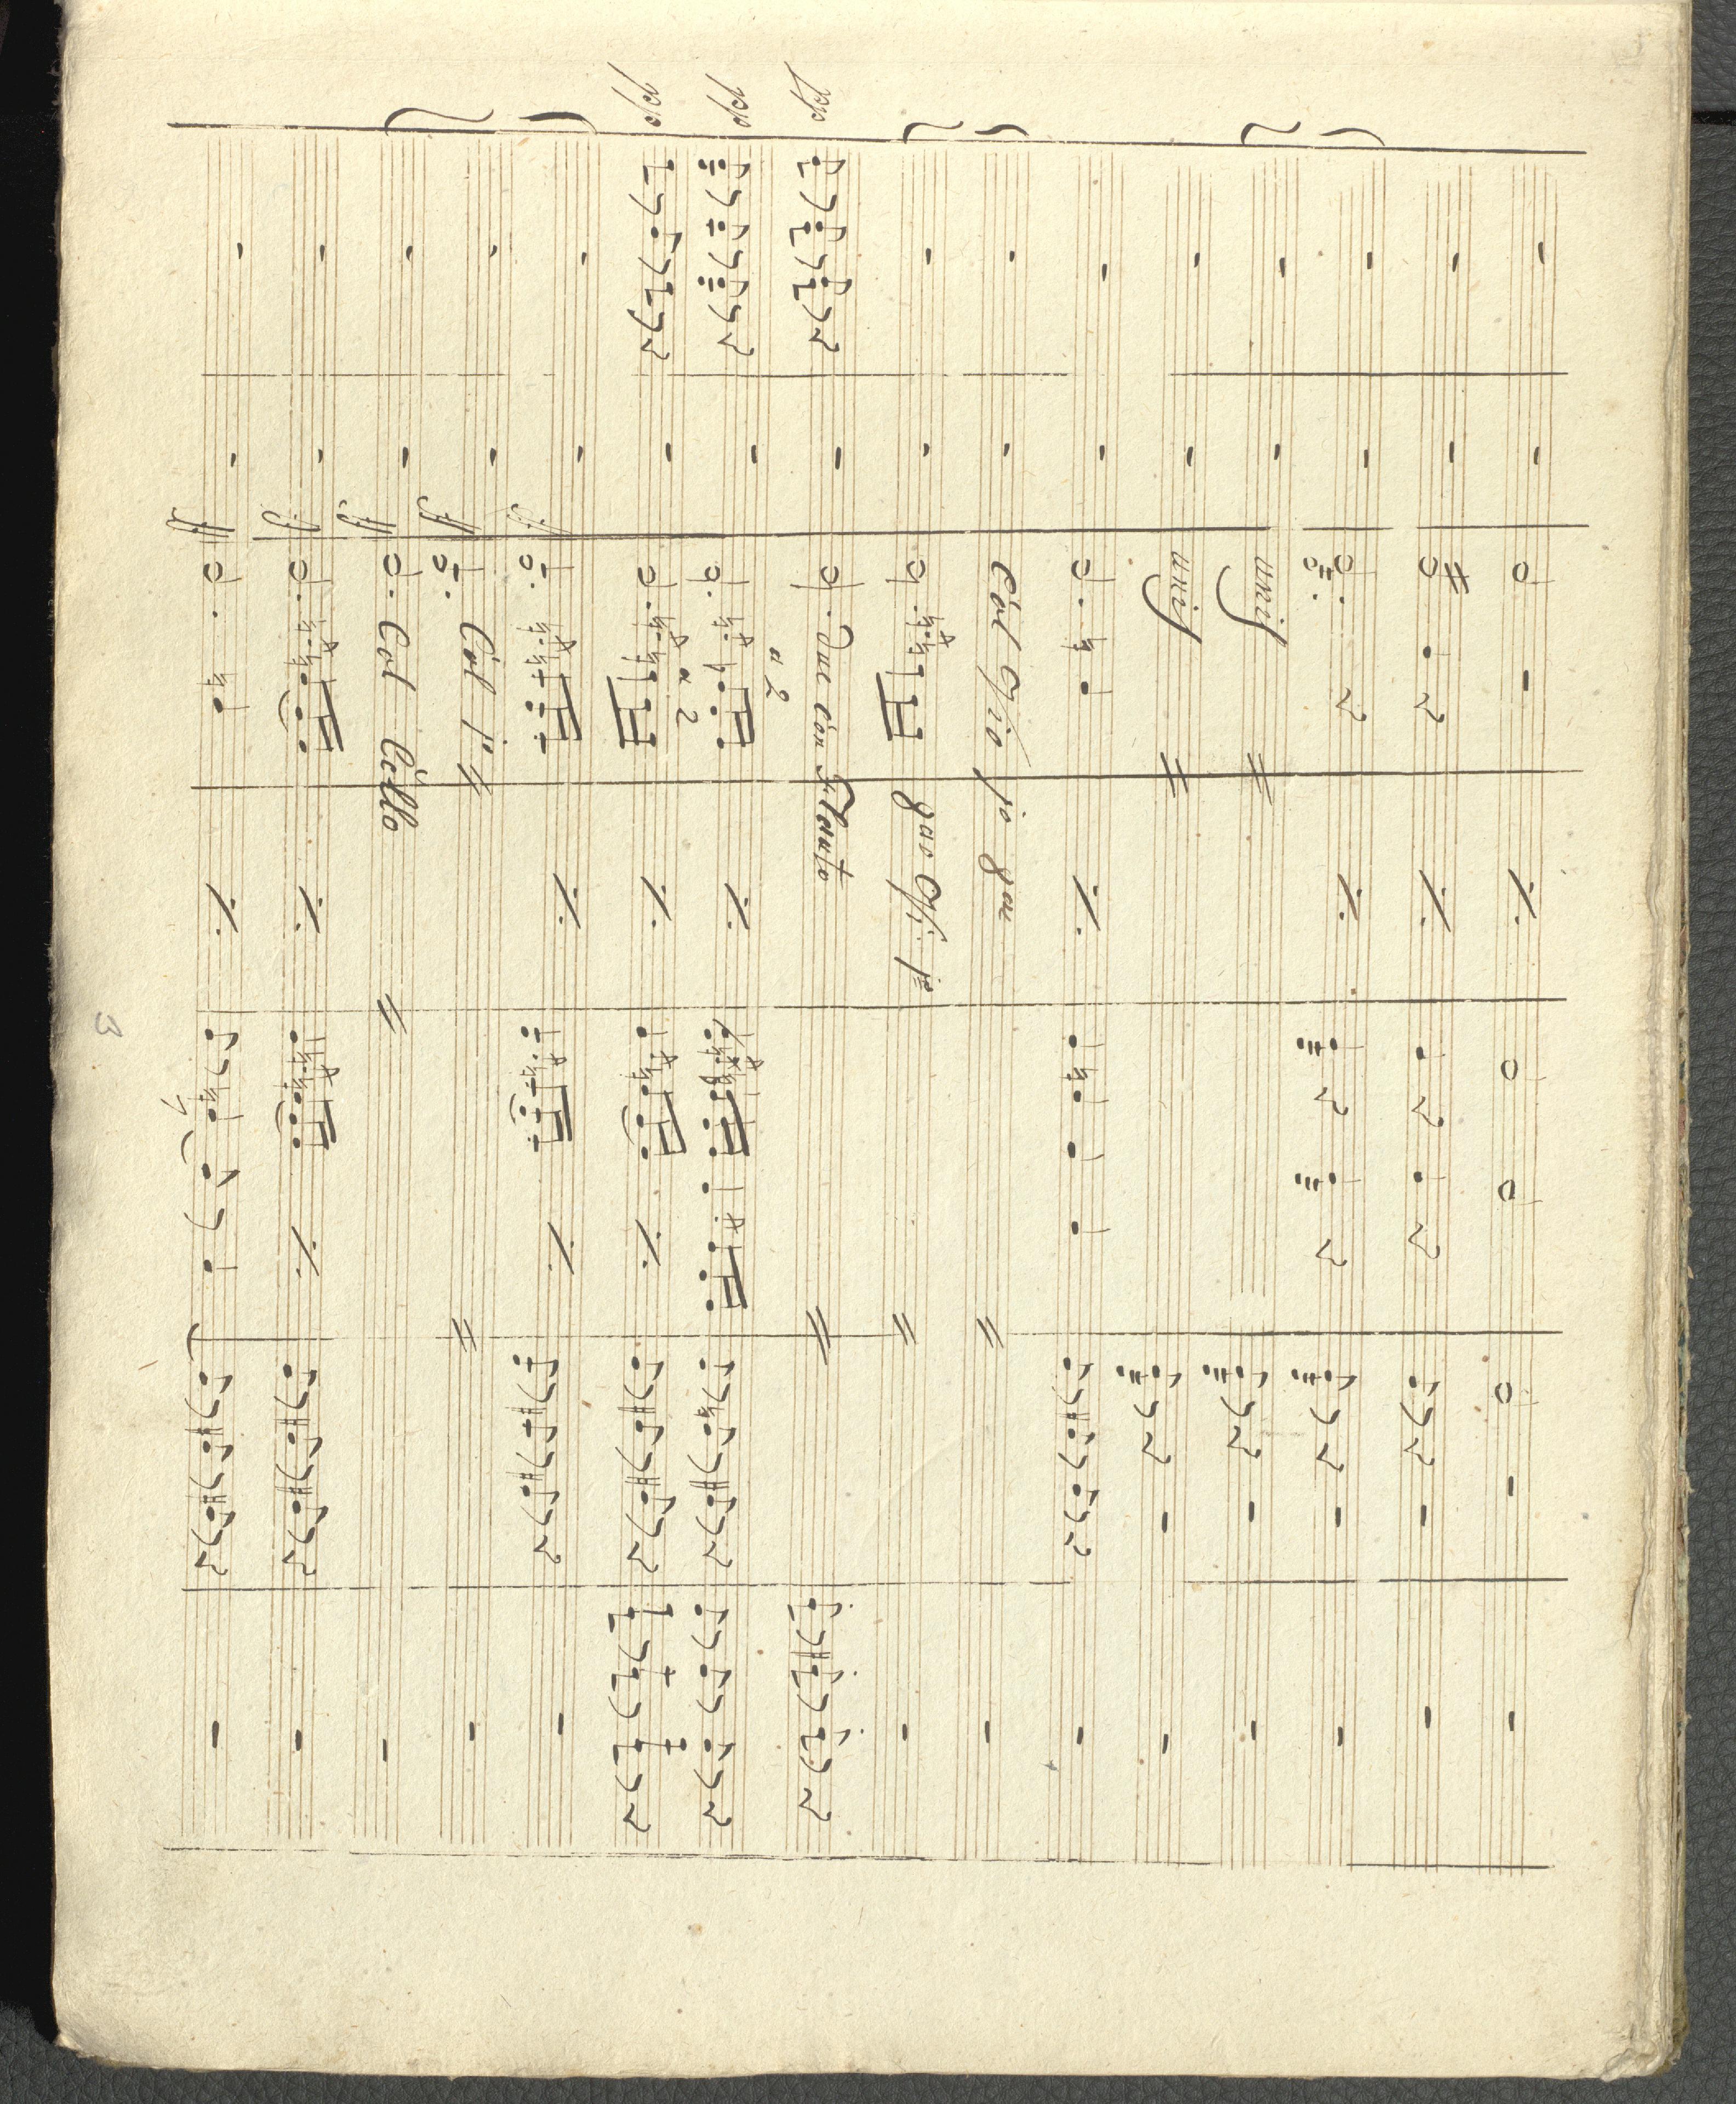 unis
unis
Col Vio 1o 8va
8va Vi: 1o
dol
due con Flauto
a 2
dol
a 2
dol
ff
ff
Col 1o
ff
Col Cello
ff
ff
3